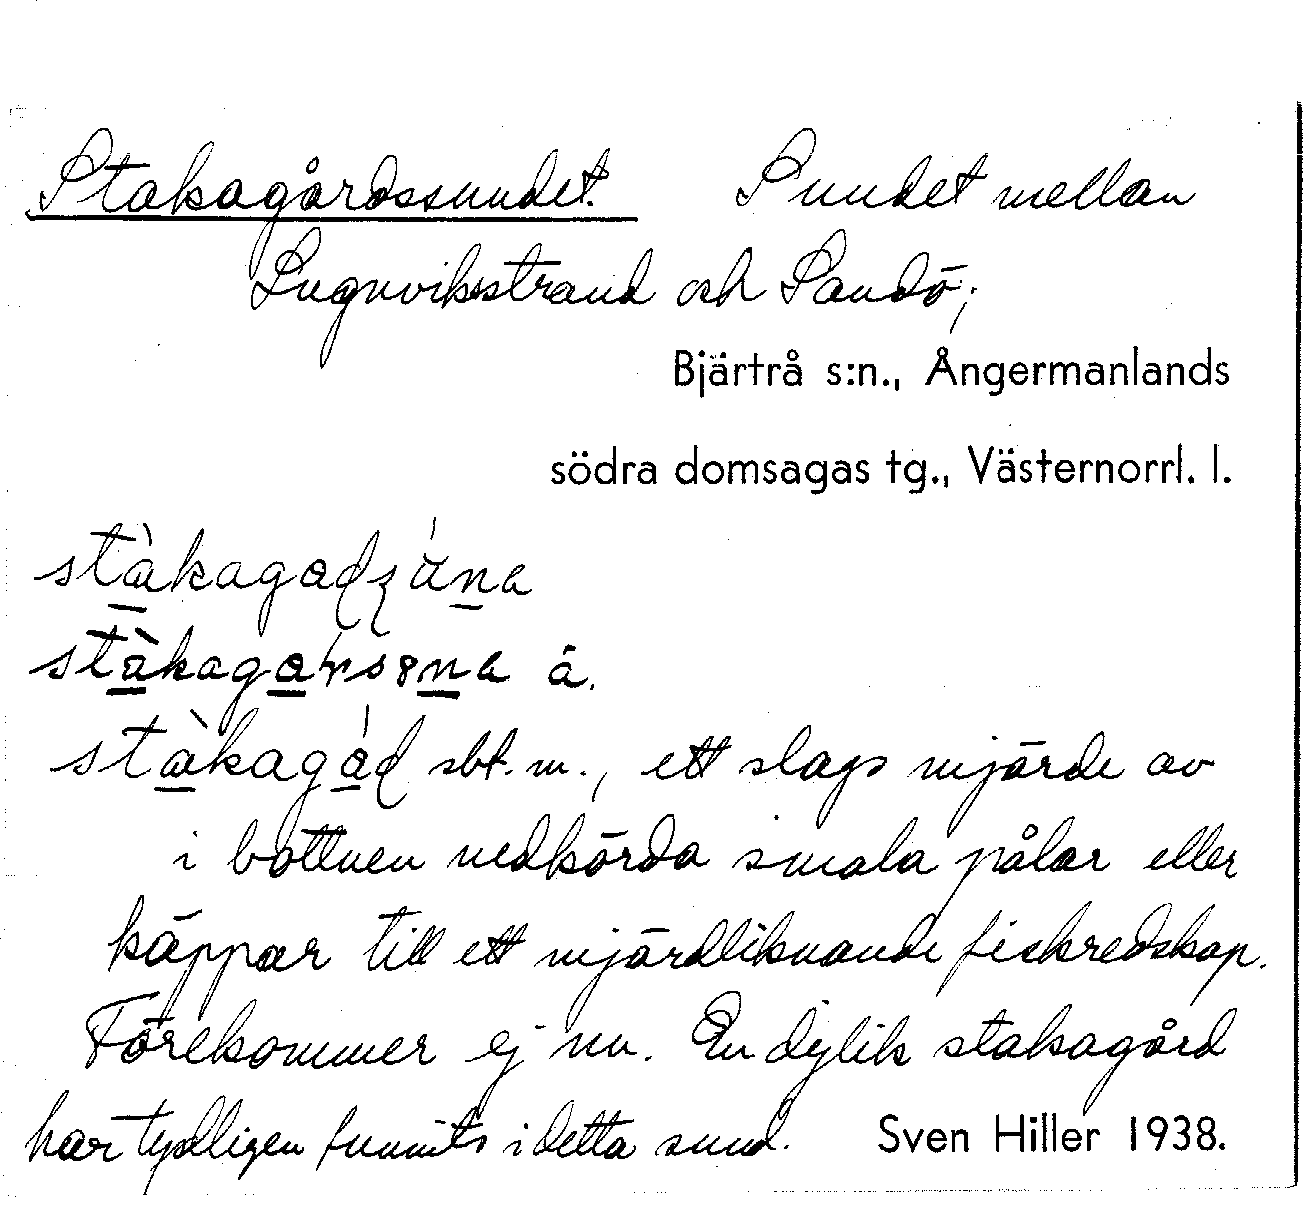 Stakagårdssundet. Sundet mellan
Lugnviksstrand och Sandö;
Bjärtrå s:n., Ångermanlands
södra domsagas tg., Västernorrl. l.
ä.
sbt. m., ett slags mjärde av
i bottnen nedkörda smala pålar eller
käppar till ett mjärdliknande fiskredskap.
Förekommer ej nu. En dylik stakagård
har tydligen funnits i detta sund. Sven Hiller 1938.